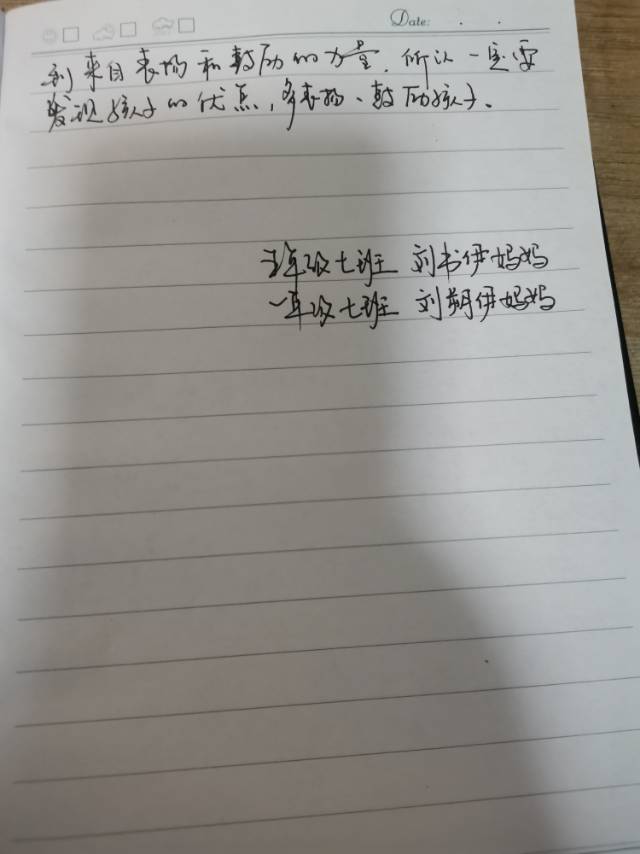 Date: . .
到来自表扬和鼓励的力量,所以一定要
发现孩子的优点,多表扬、鼓励孩子。
五年级七班 刘书伊妈妈
一年级七班 刘朔伊妈妈